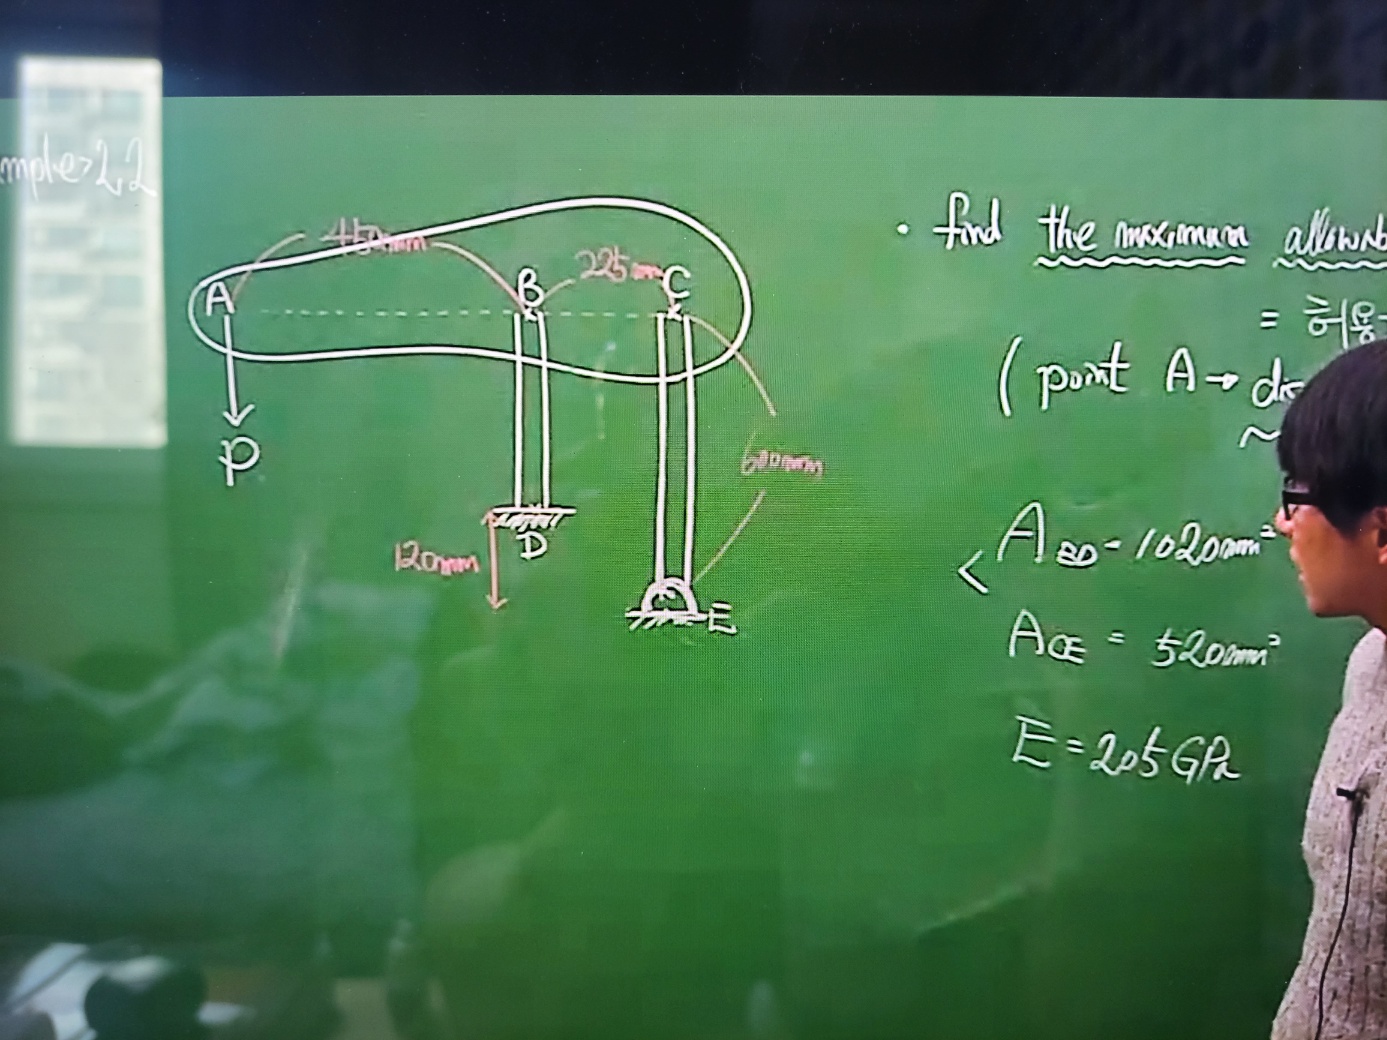 2.2
450mm
225mm
A
B
C
P
600mm
120mm
D
E
• find the maximum
= 허용
( point A →
< A_BD = 1020mm²
A_CE = 520mm²
E = 205 GPa